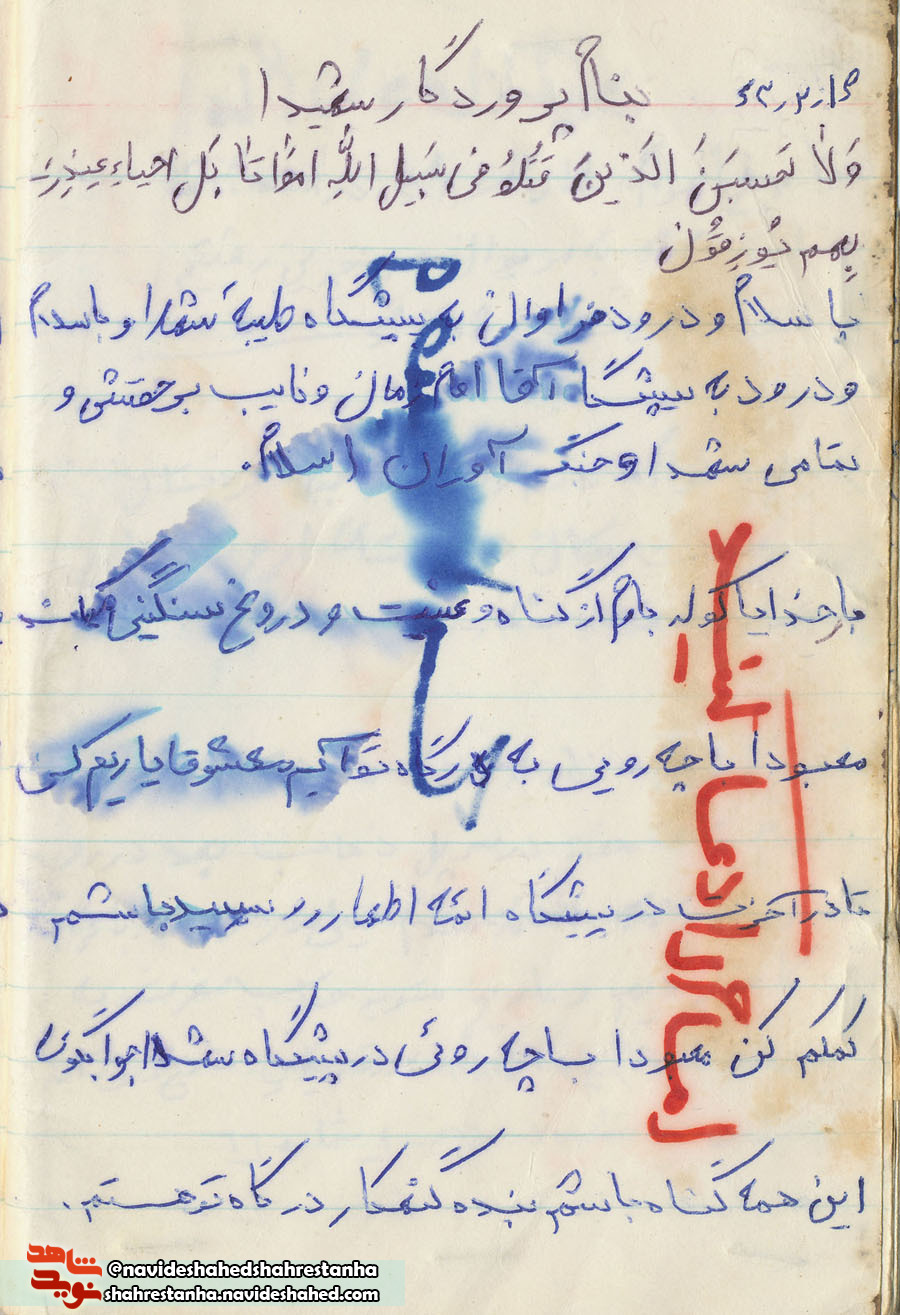 بنام پروردگار شهیدا
۶۳٫۳٫۱۳
وَلا تَحسبَنَ الَذینَ قَتُلوُ فی سَبیلِ اللهِ امَواتَا بَل احیاءِ عِندِرَ
بهم یَورِزقَوُن
با سلام و درود فراوان به پیشگاه طیبهٔ شهدا و با سلام
و درود به پیشگا آقا امام زمان و نایب برحقش و
تمامی شهدا و جنگ آوران اسلام.
بارخدایا کوله بارم از گناه و غیبت و دروغ سنگینی
معبودا با چه رویی به درگاه تو آیم معشوقا یاریم کن
تا در آخرت در پیشگاه ائمه اطهار رو سپید باشم
کمکم کن معبودا با چه روئی در پیشگاه شهدا جوابگوی
این همه گناه باشم بنده گنهکار درگاه تو هستم.
امام را دعا کنید
شاهد
نوید
@navideshahedshahrestanha
shahrestanha.navideshahed.com